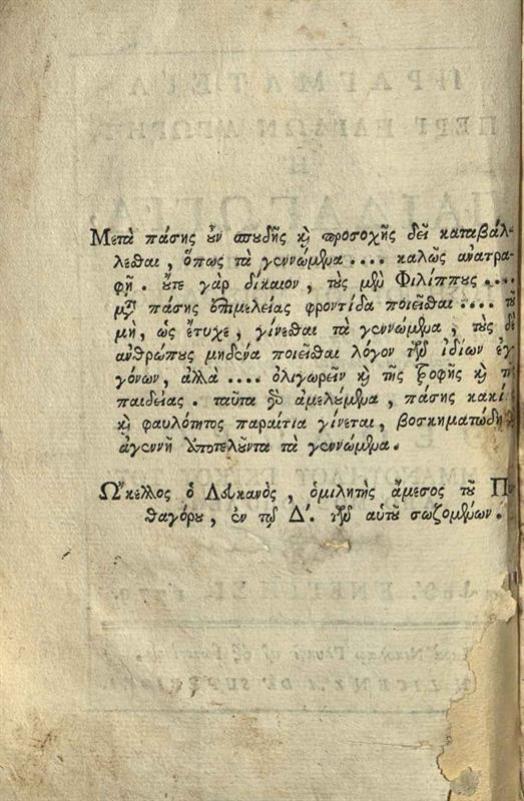 Μετὰ πάσης ȣ̓ν σπȣδῆς ϗ̀ προσοχῆς δεῖ καταβάλ-
λεσθαι, ὅπως τὰ γεννώμενα .... καλῶς ἀνατρα-
φῇ. ȣ̓́τε γὰρ δίκαιον, τȣ̀ς μὲν Φιλίππȣς ....
μετὰ πάσης ἐπιμελείας φροντίδα ποιεῖσθαι .... τȣ͂
μὴ, ὡς ἔτυχε, γίνεσθαι τὰ γεννώμενα, τȣ̀ς δὲ
ἀνθρώπȣς μηδένα ποιεῖσθαι λόγον τῶν ἰδίων ἐγ
γόνων, ἀλλὰ .... ὀλιγωρεῖν ϗ̀ τῆς τροφῆς ϗ̀ τῆς
παιδείας. ταῦτα γὰρ ἀμελȣ́μενα, πάσης κακί
ϗ̀ φαυλότητος παραίτια γίνεται, βοσκηματώδη ϗ̀
ἀγεννῆ ἀποτελȣ͂ντα τὰ γεννώμενα.
Ὤκελλος ὁ Λȣκανὸς, ὁμιλητὴς ἄμεσος τȣ͂ Πυ
θαγόρȣ, ἐν τῷ Δ΄. τῶν αὐτȣ͂ σωζομένων.